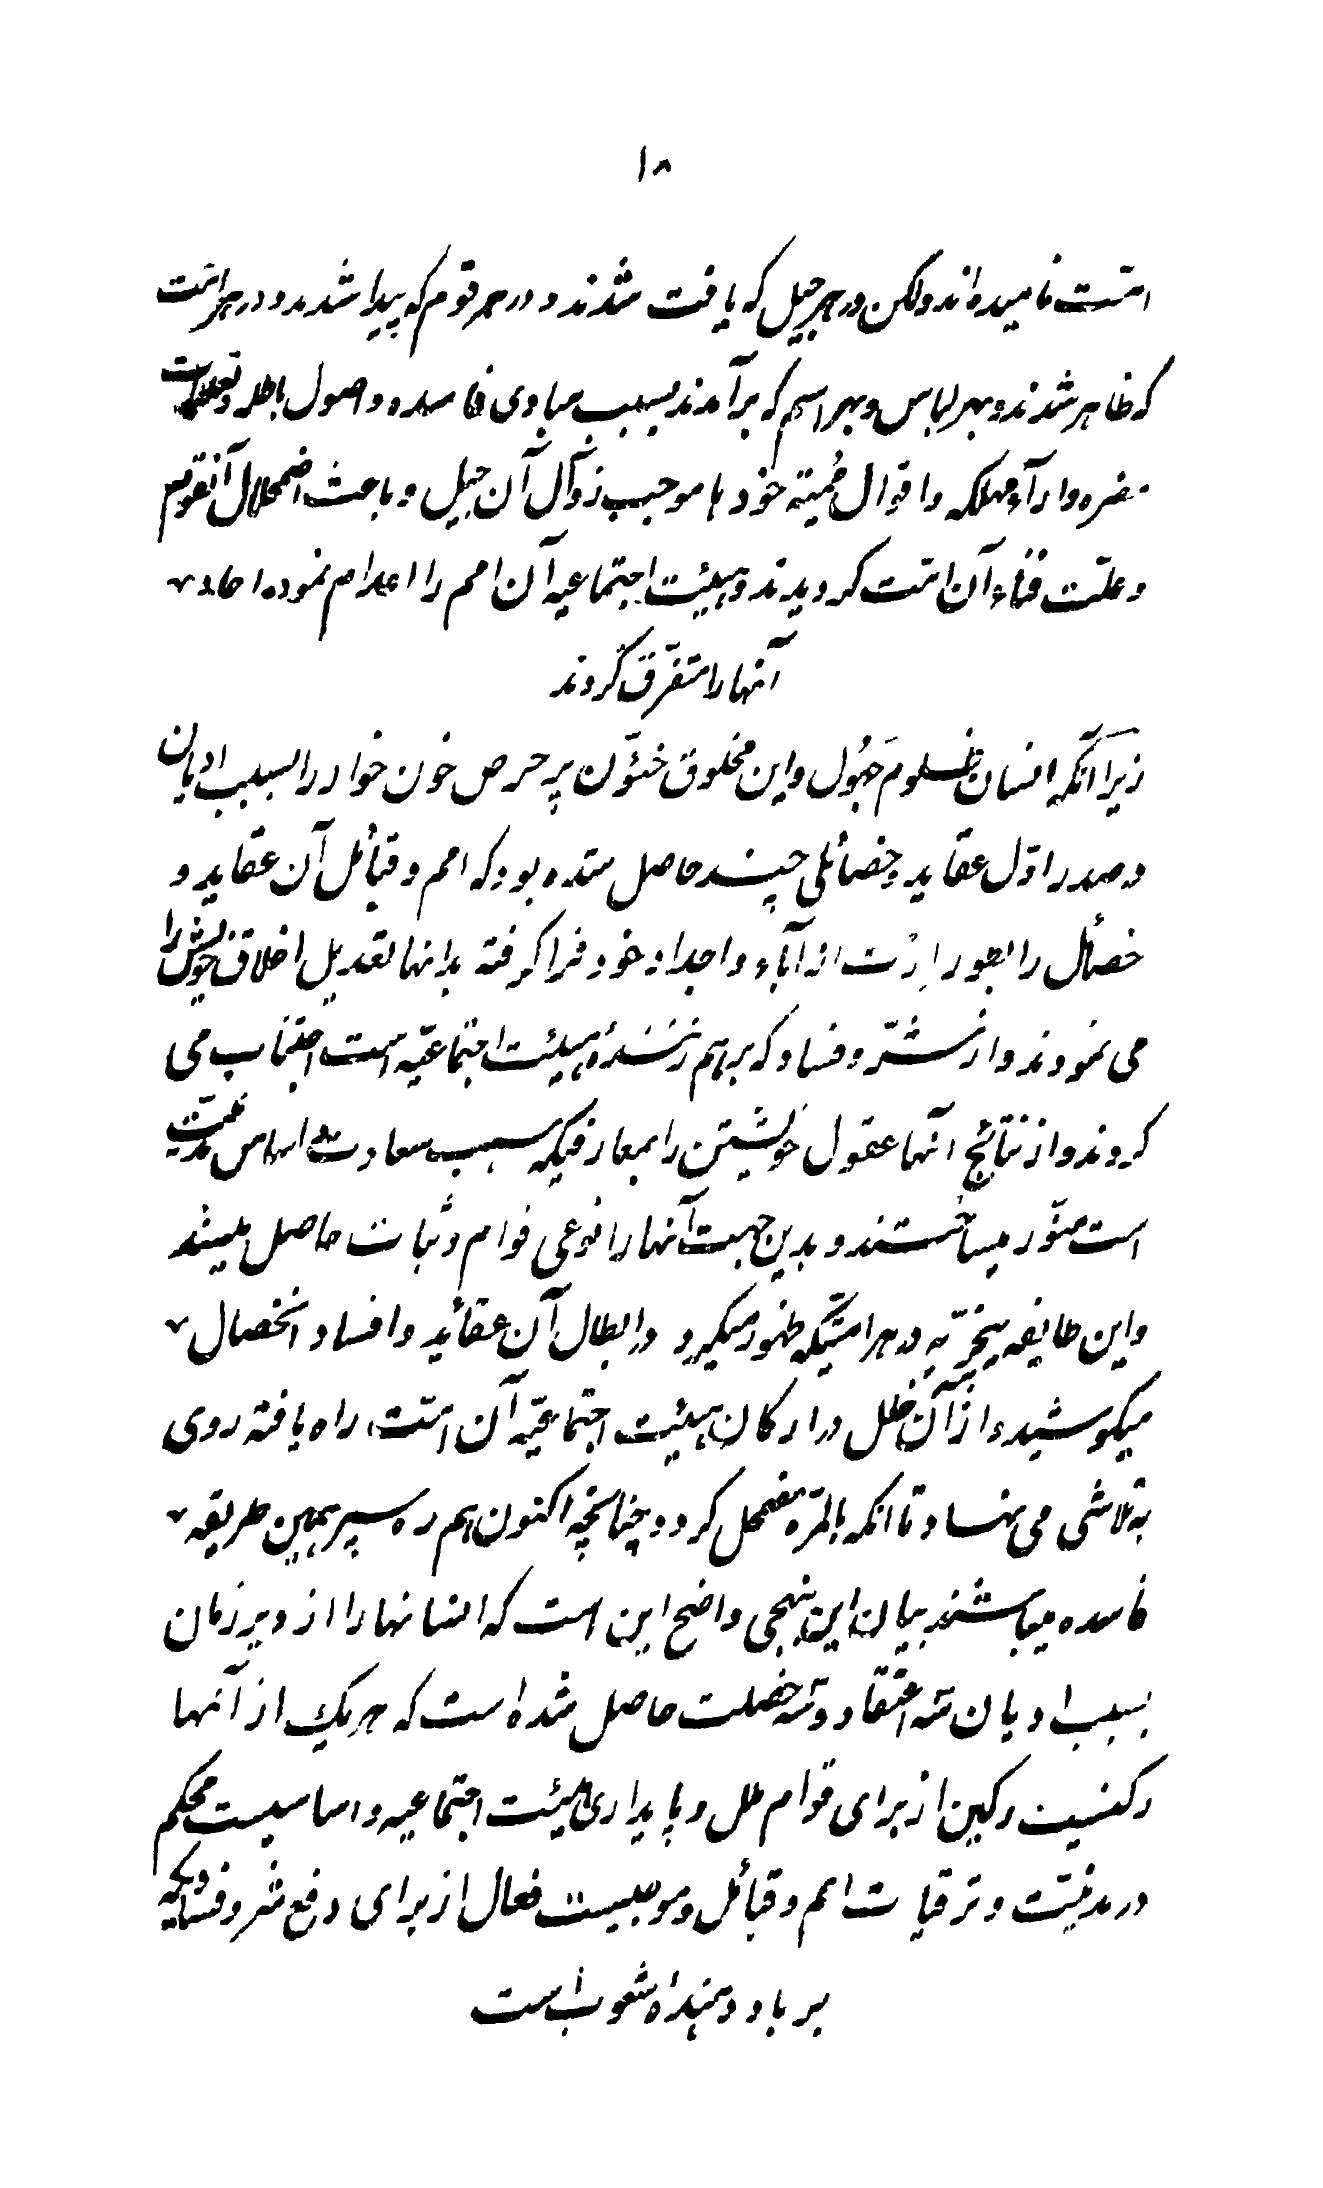 ۱۸
امّت نامیده‌اند ولکن در هر جیل که یافت شدند و در هر قوم که پیدا شدند و در هر امّت
که ظاهر شدند و بهر لباس و بهر اسم که برآمدند بسبب مبادی فاسده و اصول باطله و تعلیمات
مضره و آراء مهلکه و اقوال مُمیته خودها موجب زوال آن جیل و باعث اضمحلال آنقوم
و علّت فناء آن امّت گردیدند و هیئت اجتماعیه آن امم را اعدام نموده احاد
آنها را متفرّق کردند
زیرا آنکه انسان ظلوم جَهُول و این مخلوق خئوّن پر حرص خون خوار را بسبب ادیان
در صدر اوّل عقاید و خصائلی چند حاصل شده بود که امم و قبائل آن عقاید و
خصائل را بطور ارث از آباء و اجداد خود فرا گرفته بدانها تعدیل اخلاق خویش را
می نمودند و از شرّ و فساد که برهم زنندهٔ هیئت اجتماعیّه است اجتناب می
کردند و از نتائج آنها عقول خویشتن را بمعارفیکه سبب سعادت و اساس مدنیّت
است منوّر میساختند و بدین جهت آنها را نوعی قوام و ثبات حاصل میشد
و این طایفه نیچریّه در هر امّتیکه ظهور میکرد در ابطال آن عقائد و افساد آنخصال
میکوشید و از آن خلل در ارکان هیئت اجتماعیّه آن امّت راه یافته روی
به تلاشی می نهاد تا آنکه بالمرّه مضمحل گردد چنانچه اکنون هم ره سپر همین طریقه
فاسده میباشند بیان این بنهجی واضح این است که انسانها را از دیر زمان
بسبب ادیان سه اعتقاد و سه خصلت حاصل شده است که هر یک از آنها
رکنیست رکین از برای قوام ملل و پایداری هیئت اجتماعیه و اساسیست محکم
در مدنیّت و ترقیات امم و قبائل و موجبیست فعال از برای دفع شر و فسادیکه
بر باد دهندهٔ شعوب است